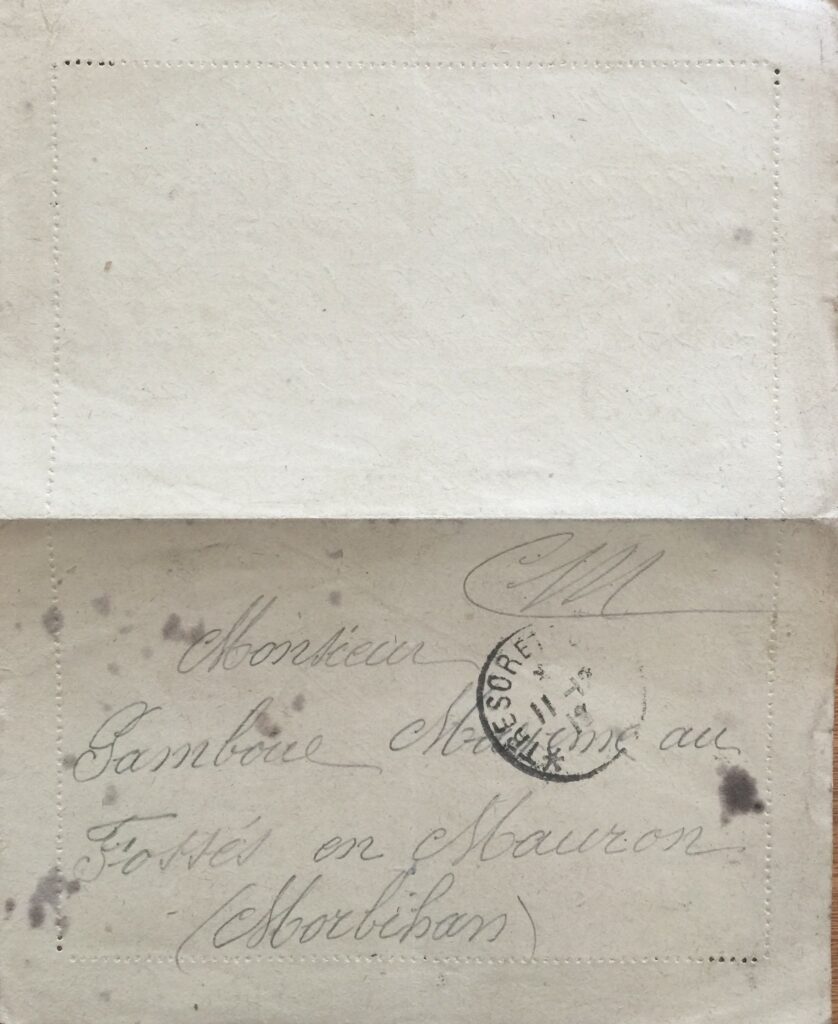 CM
Monsieur
Jamboue Maxime au
Fossés en Mauron
(Morbihan)
*TRESORE
11